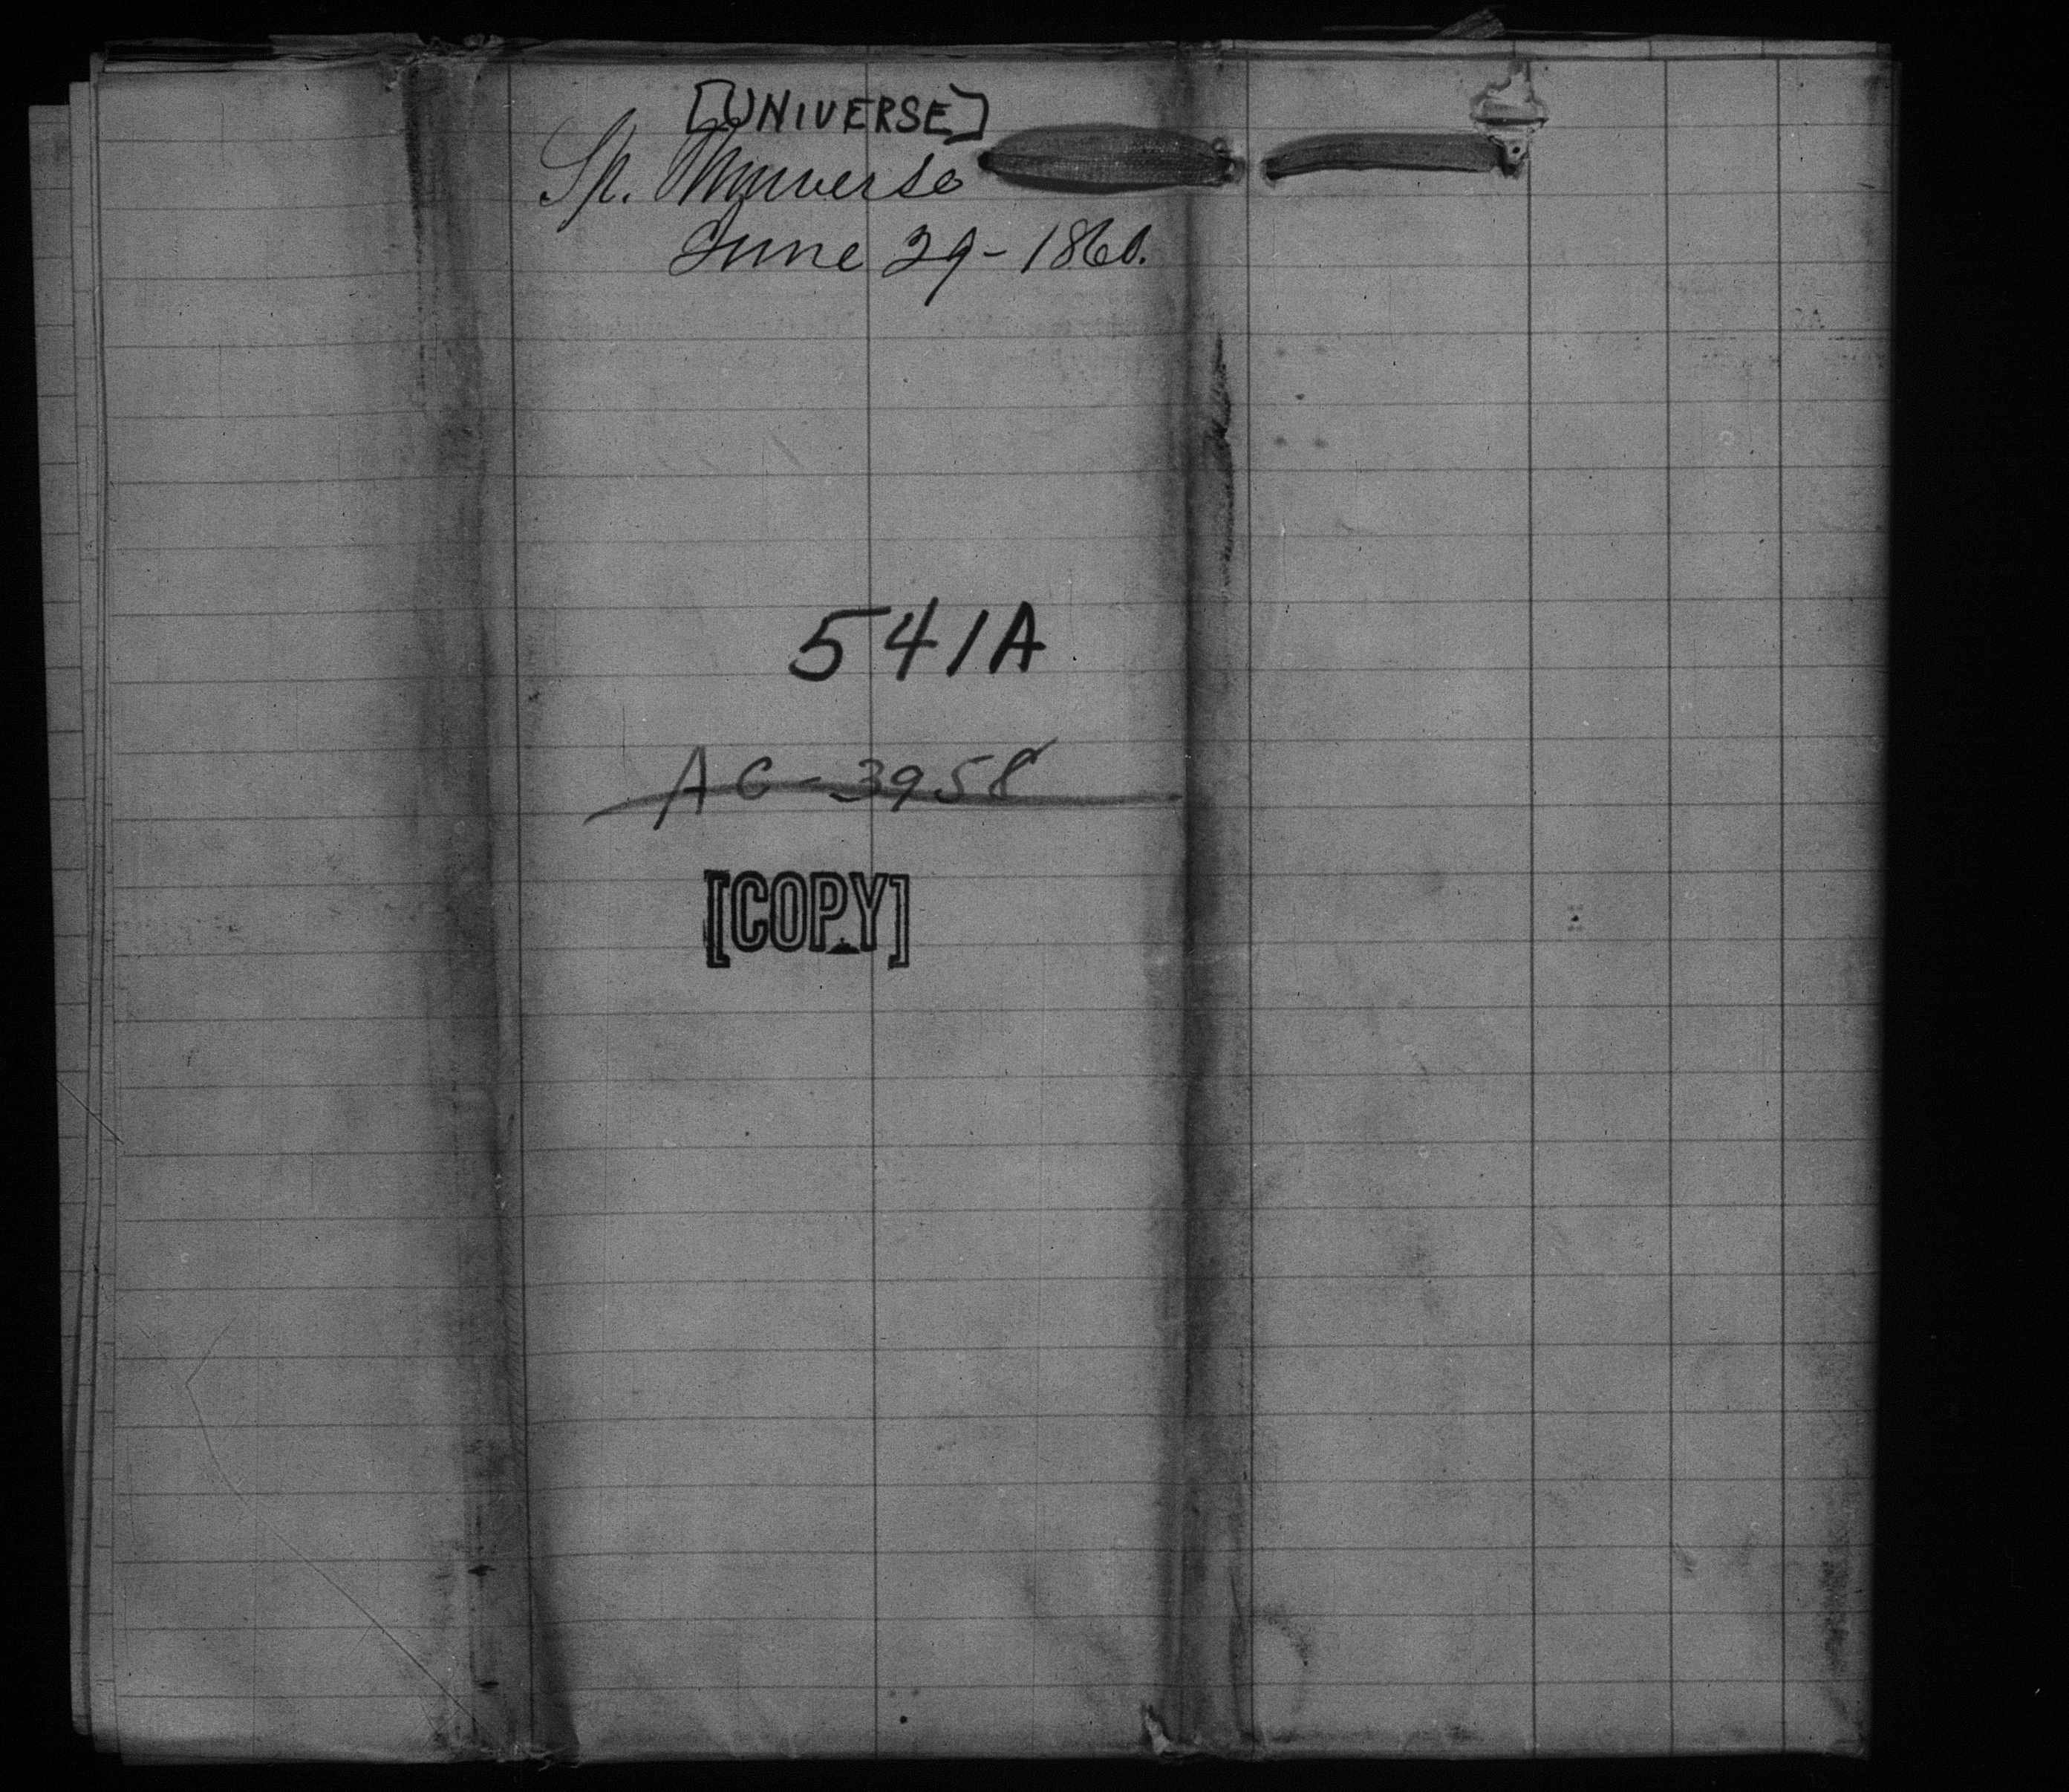 [UNIVERSE]
Sh. Universe
June 29-1860.
541A
AC-3958
[COPY]